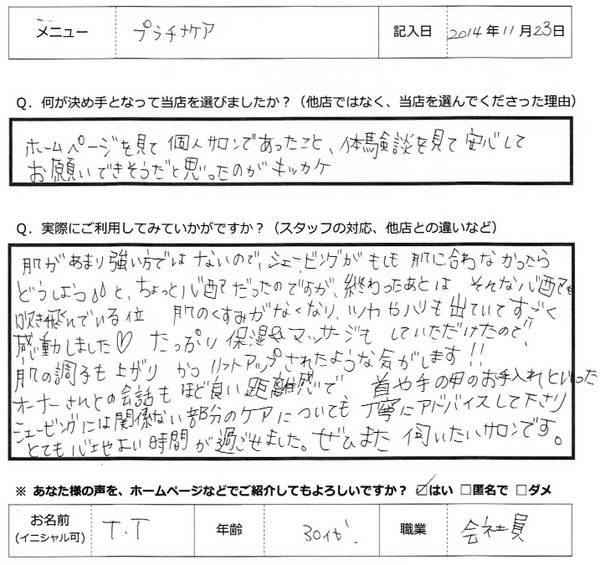 メニュー プラチナケア 記入日 2014年11月23日
Q．何が決め手となって当店を選びましたか？（他店ではなく、当店を選んでくださった理由）
ホームページを見て個人サロンであったこと、体験談を見て安心して
お願いできそうだと思ったのがキッカケ
Q．実際にご利用してみていかがですか？（スタッフの対応、他店との違いなど）
肌があまり強い方ではないので、シェービングがもしも肌に合わなかったら
どうしようと、ちょっと心配だったのですが、終わったあとは そんな心配も
吹き飛んでいる位 肌のくすみがなくなり、ツヤやハリも出ていてすごく
感動しました♡ たっぷり保湿やマッサージもしていただけたので、
肌の調子も上がり かつ リフトアップされたような気がします!!
オーナーさんとの会話もほど良い距離感で 首や手の甲のお手入れといった
シェービングには関係ない部分のケアについても丁寧にアドバイスして下さり
とても心地よい時間が過ごせました。ぜひまた 伺いたいサロンです。
※ あなた様の声を、ホームページなどでご紹介してもよろしいですか？ ☑はい □匿名で □ダメ
お名前 T.T 年齢 30代 職業 会社員
(イニシャル可)